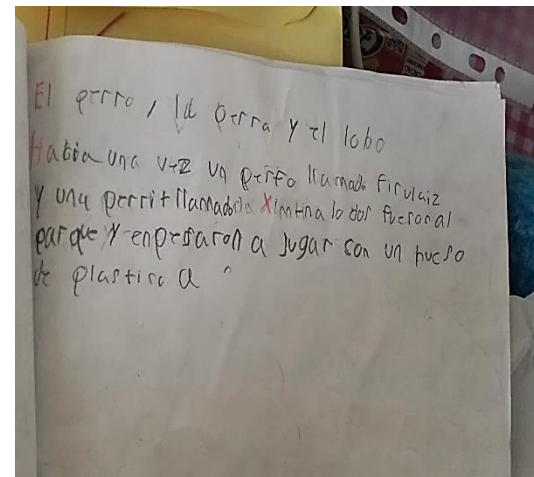 El perro, la perra y el lobo
Habia una vez un perro llamado firulaiz
y una perrit llamada Ximena lo dos fueron al
parque y enpesaron a jugar con un hueso
de plastico a